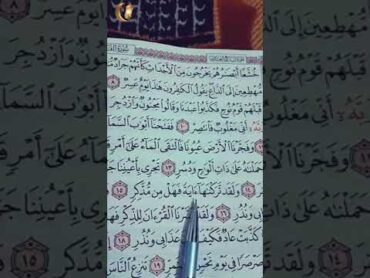 خُشَّعًا أَبْصَٰرُهُمْ يَخْرُجُونَ مِنَ ٱلْأَجْدَاثِ كَأَنَّهُمْ جَرَادٌ
مُّهْطِعِينَ إِلَى ٱلدَّاعِ يَقُولُ ٱلْكَٰفِرُونَ هَٰذَا يَوْمٌ عَسِرٌ
قَبْلَهُمْ قَوْمُ نُوحٍ فَكَذَّبُوا۟ عَبْدَنَا وَقَالُوا۟ مَجْنُونٌ وَٱزْدُجِرَ
أَنِّى مَغْلُوبٌ فَٱنتَصِرْ ١٠ فَفَتَحْنَآ أَبْوَٰبَ ٱلسَّمَآءِ
وَفَجَّرْنَا ٱلْأَرْضَ عُيُونًا فَٱلْتَقَى ٱلْمَآءُ عَلَىٰٓ أَمْرٍ
عَلَىٰ ذَاتِ أَلْوَٰحٍ وَدُسُرٍ ١٣ تَجْرِى بِأَعْيُنِنَا
١٤ وَلَقَد تَّرَكْنَٰهَآ ءَايَةً فَهَلْ مِن مُّدَّكِرٍ ١٥
وَنُذُرِ ١٦ وَلَقَدْ يَسَّرْنَا ٱلْقُرْءَانَ لِلذِّكْرِ فَهَلْ
كَذَّبَتْ عَادٌ فَكَيْفَ كَانَ عَذَابِى وَنُذُرِ ١٨
صَرْصَرًا فِى يَوْمِ نَحْسٍ مُّسْتَمِرٍّ ١٩ تَنزِعُ ٱلنَّاسَ